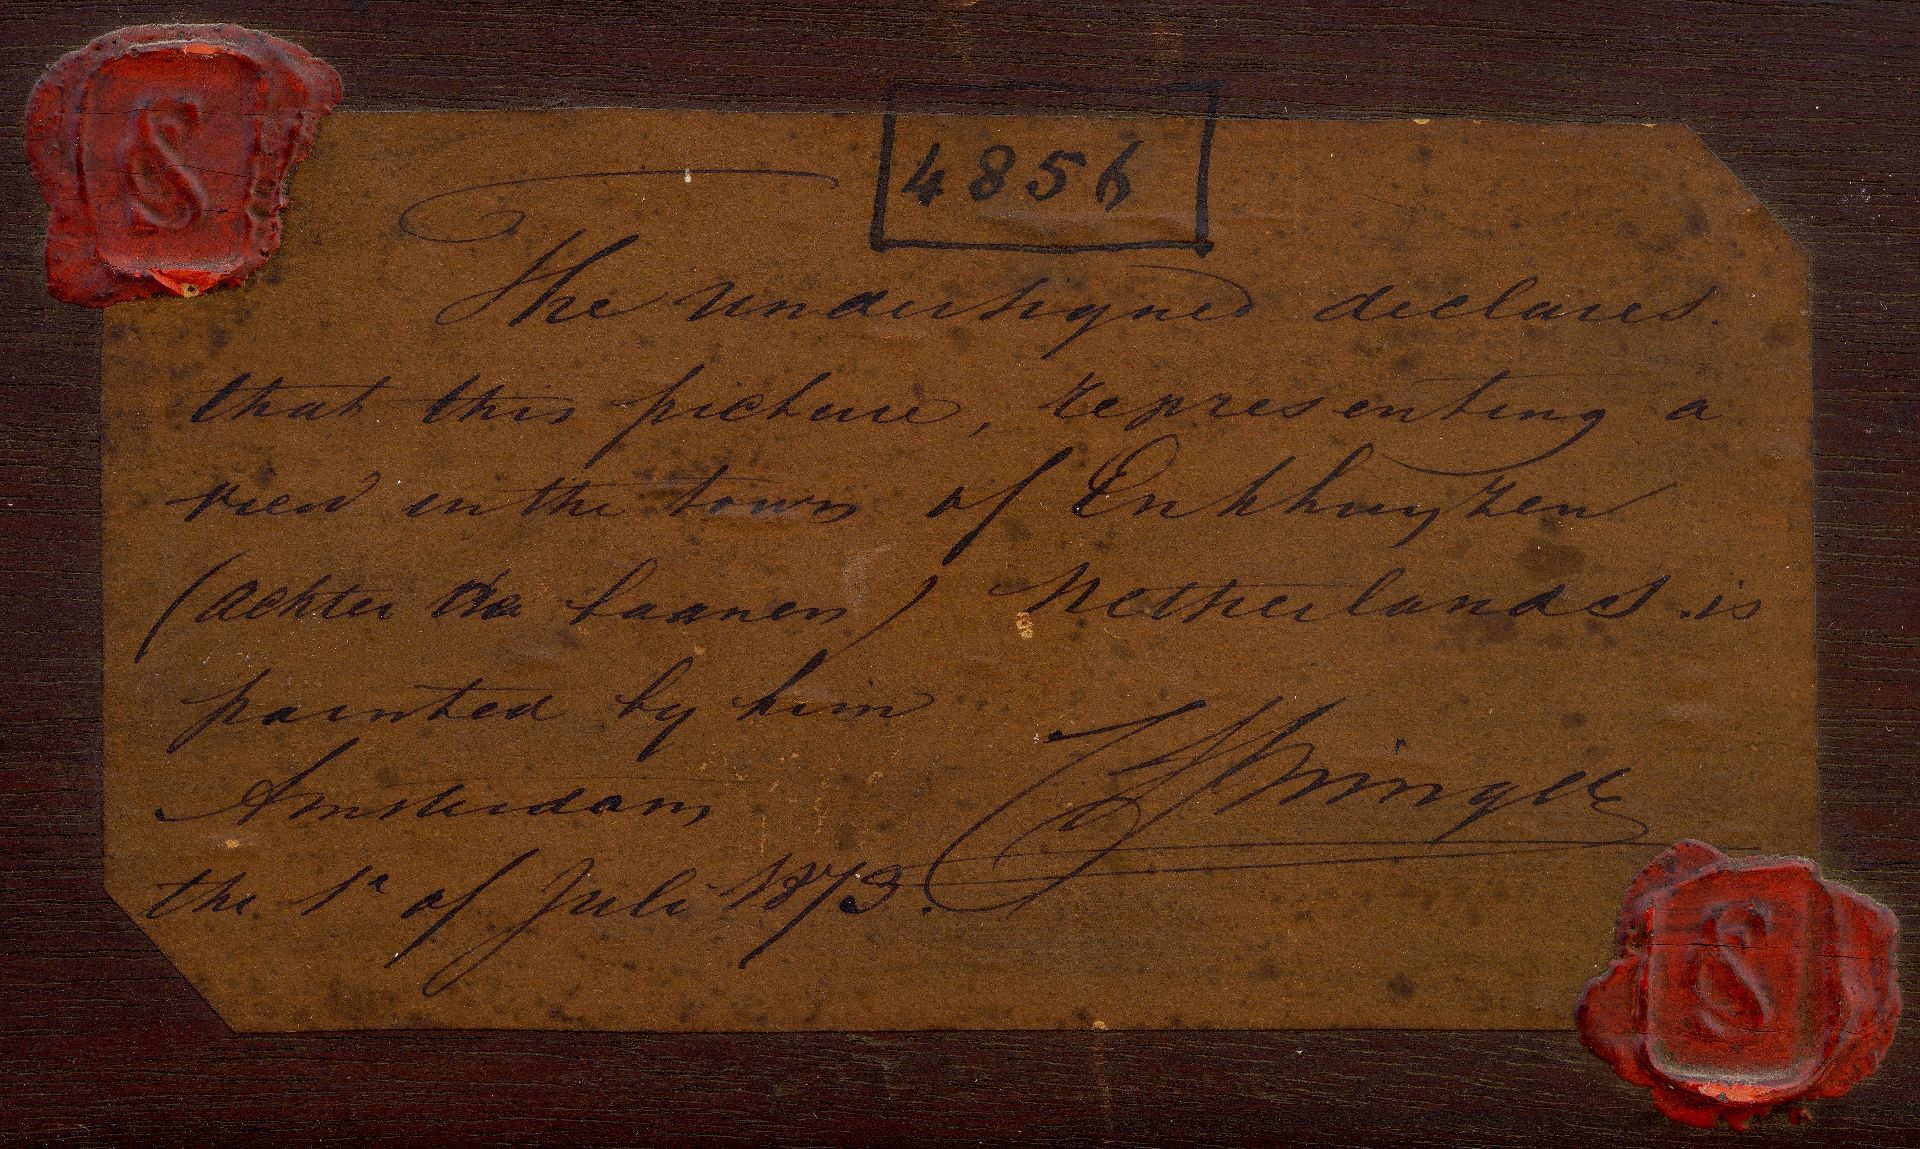 S
4856
The undersigned declares
that this picture, representing a
view in the town of Enkhuyzen
(achter the laanen) Netherlands. is
painted by him
CSpringer
Amsterdam
the 1e of Juli 1873.
S